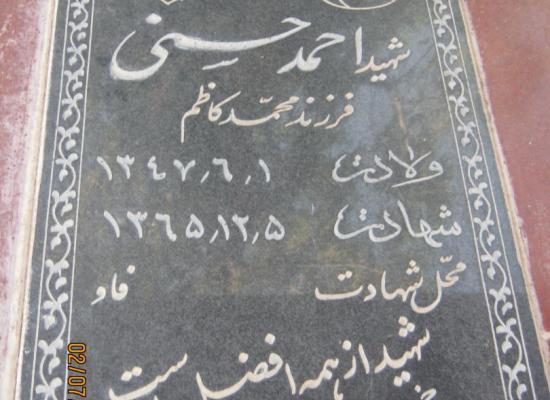 شهید احمد حسنی
فرزند محمد کاظم
ولادت ۱۳۴۷٫۶٫۱
شهادت ۱۳۶۵٫۱۲٫۵
محل شهادت فاو
شهید از همه افضل است
02/07